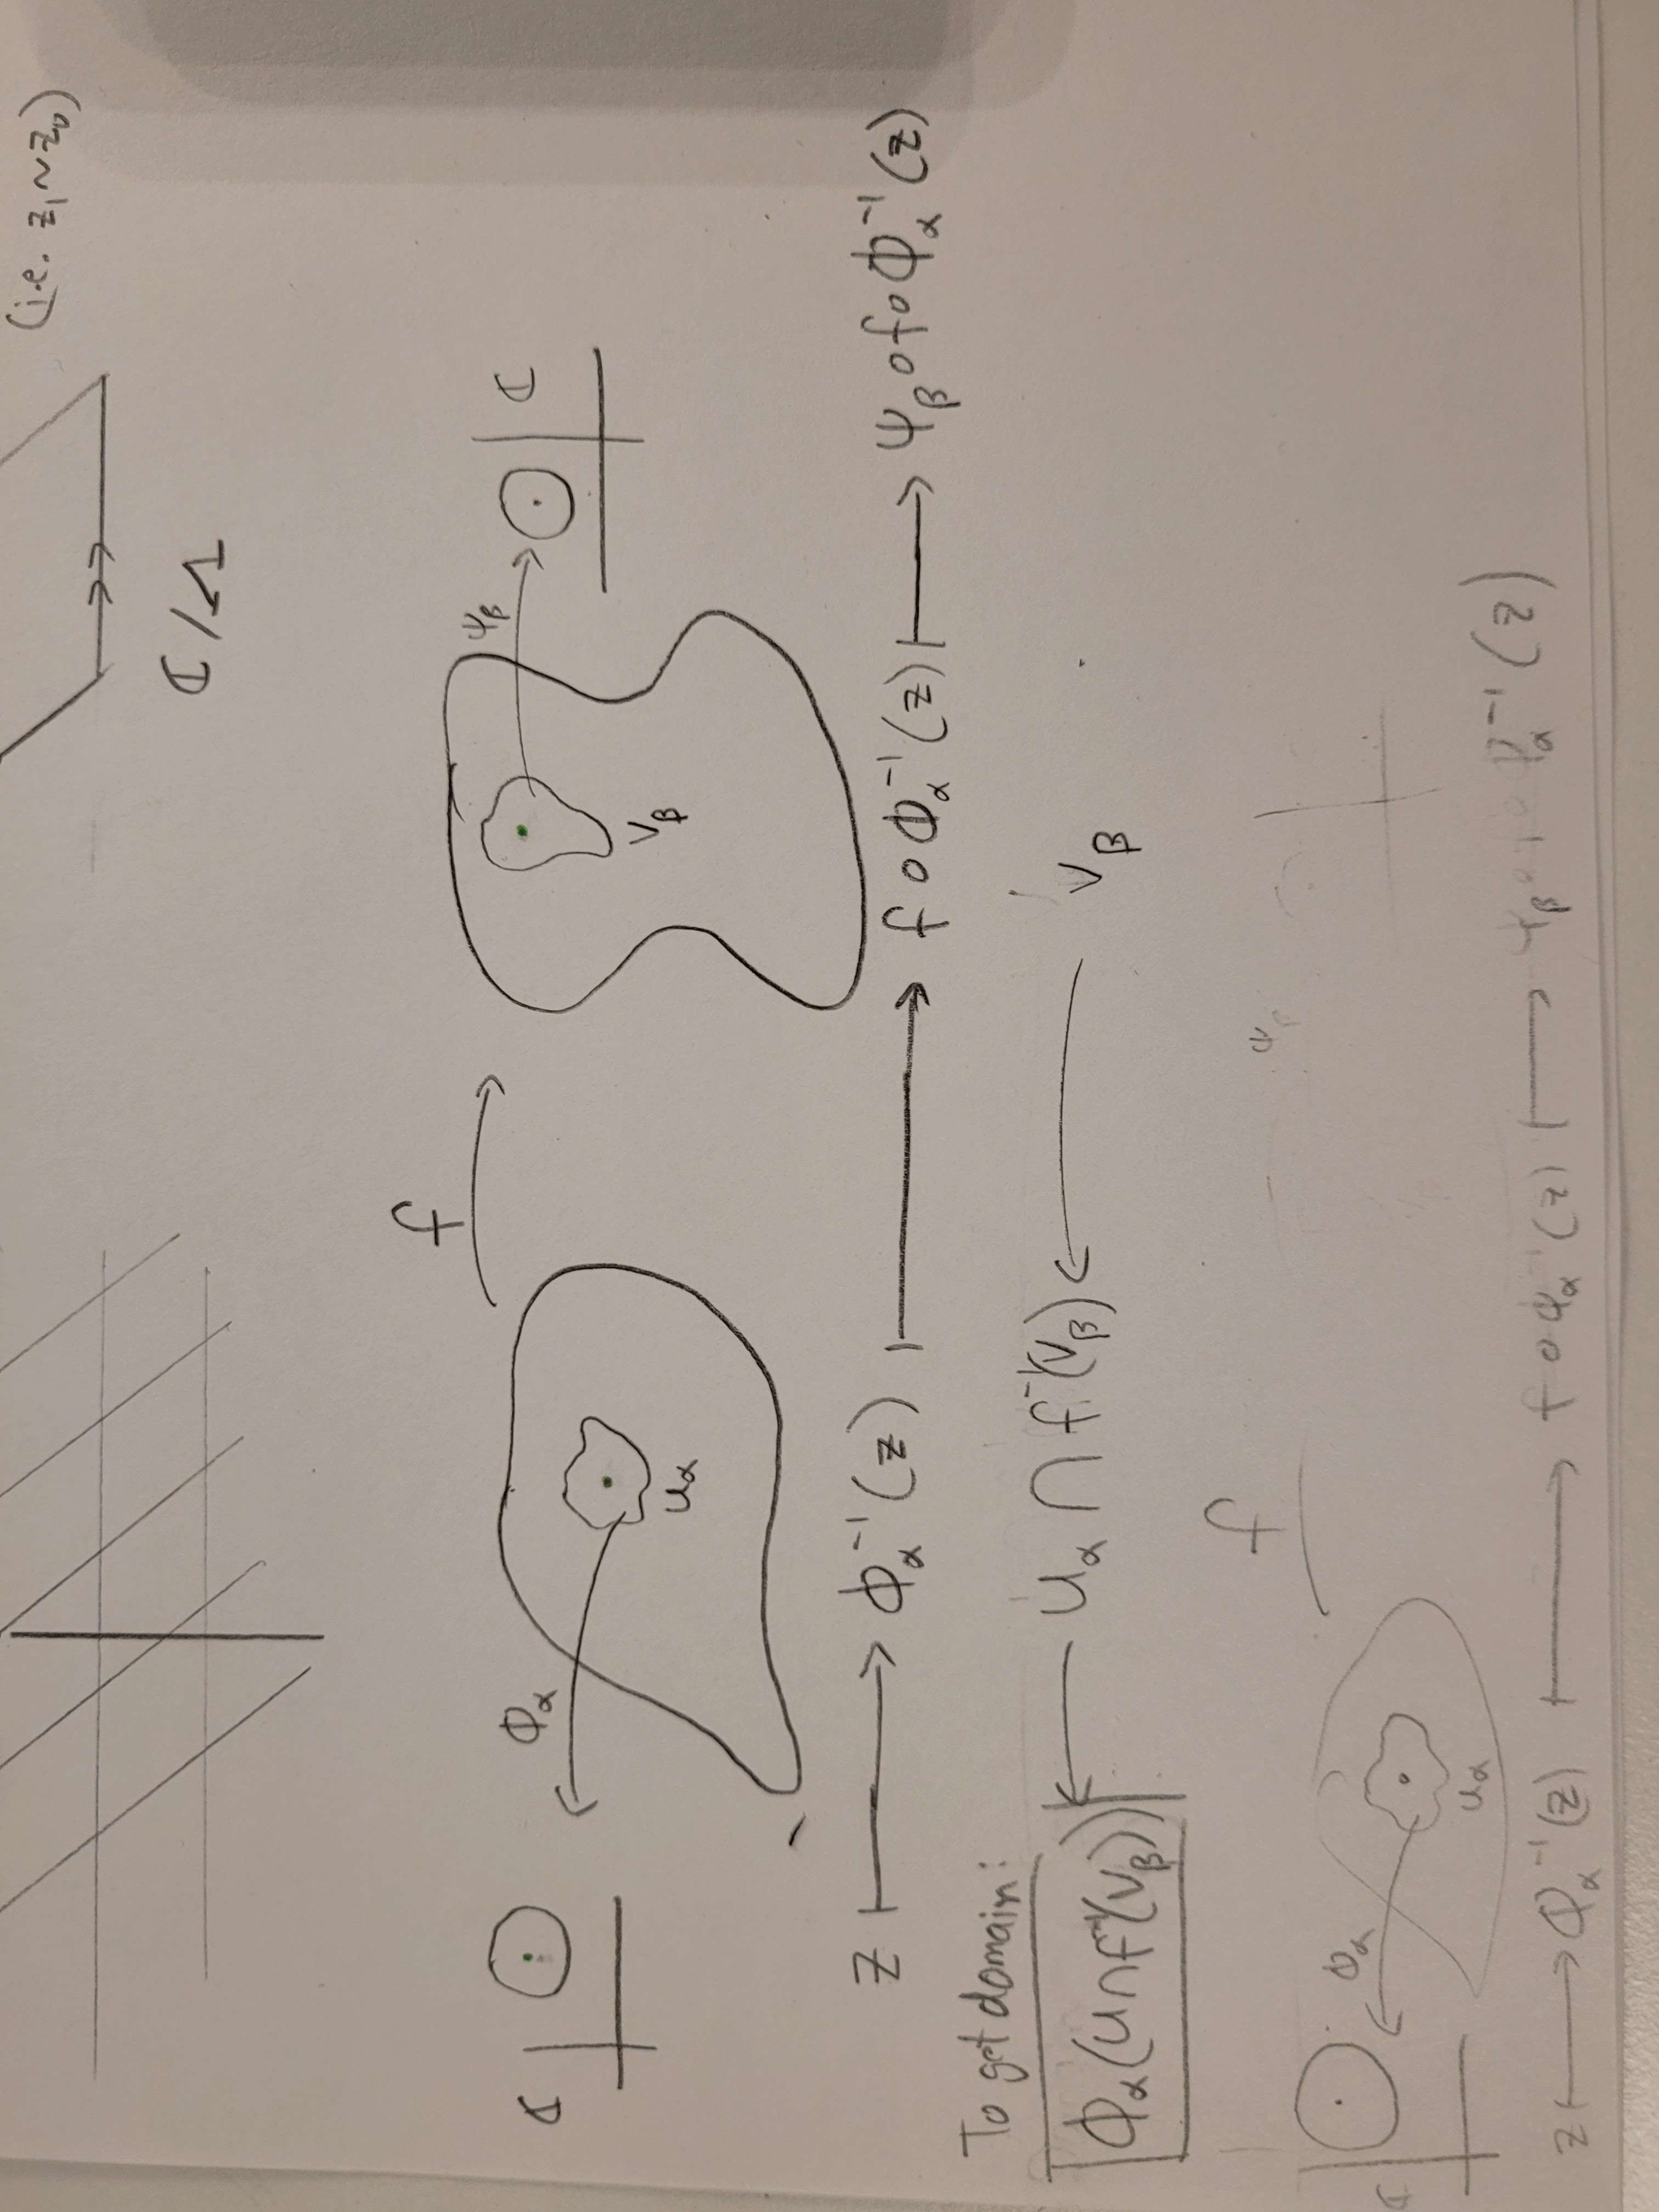 (i.e. z₁~z₀)
ℂ/Λ
f
ℂ ϕ_α U_α V_β ψ_β ℂ
z ⟼ ϕ_α⁻¹(z) ⟼ f∘ϕ_α⁻¹(z) ⟼ ψ_β∘f∘ϕ_α⁻¹(z)
To get domain:
ϕ_α(U∩f⁻¹(V_β)) ⟵ U_α ∩ f⁻¹(V_β) ⟵ V_β
f
ℂ ϕ_α U_α ψ_β
z ⟼ ϕ_α⁻¹(z) ⟼ f∘ϕ_α⁻¹(z) ⟼ ψ_β∘f∘ϕ_α⁻¹(z)